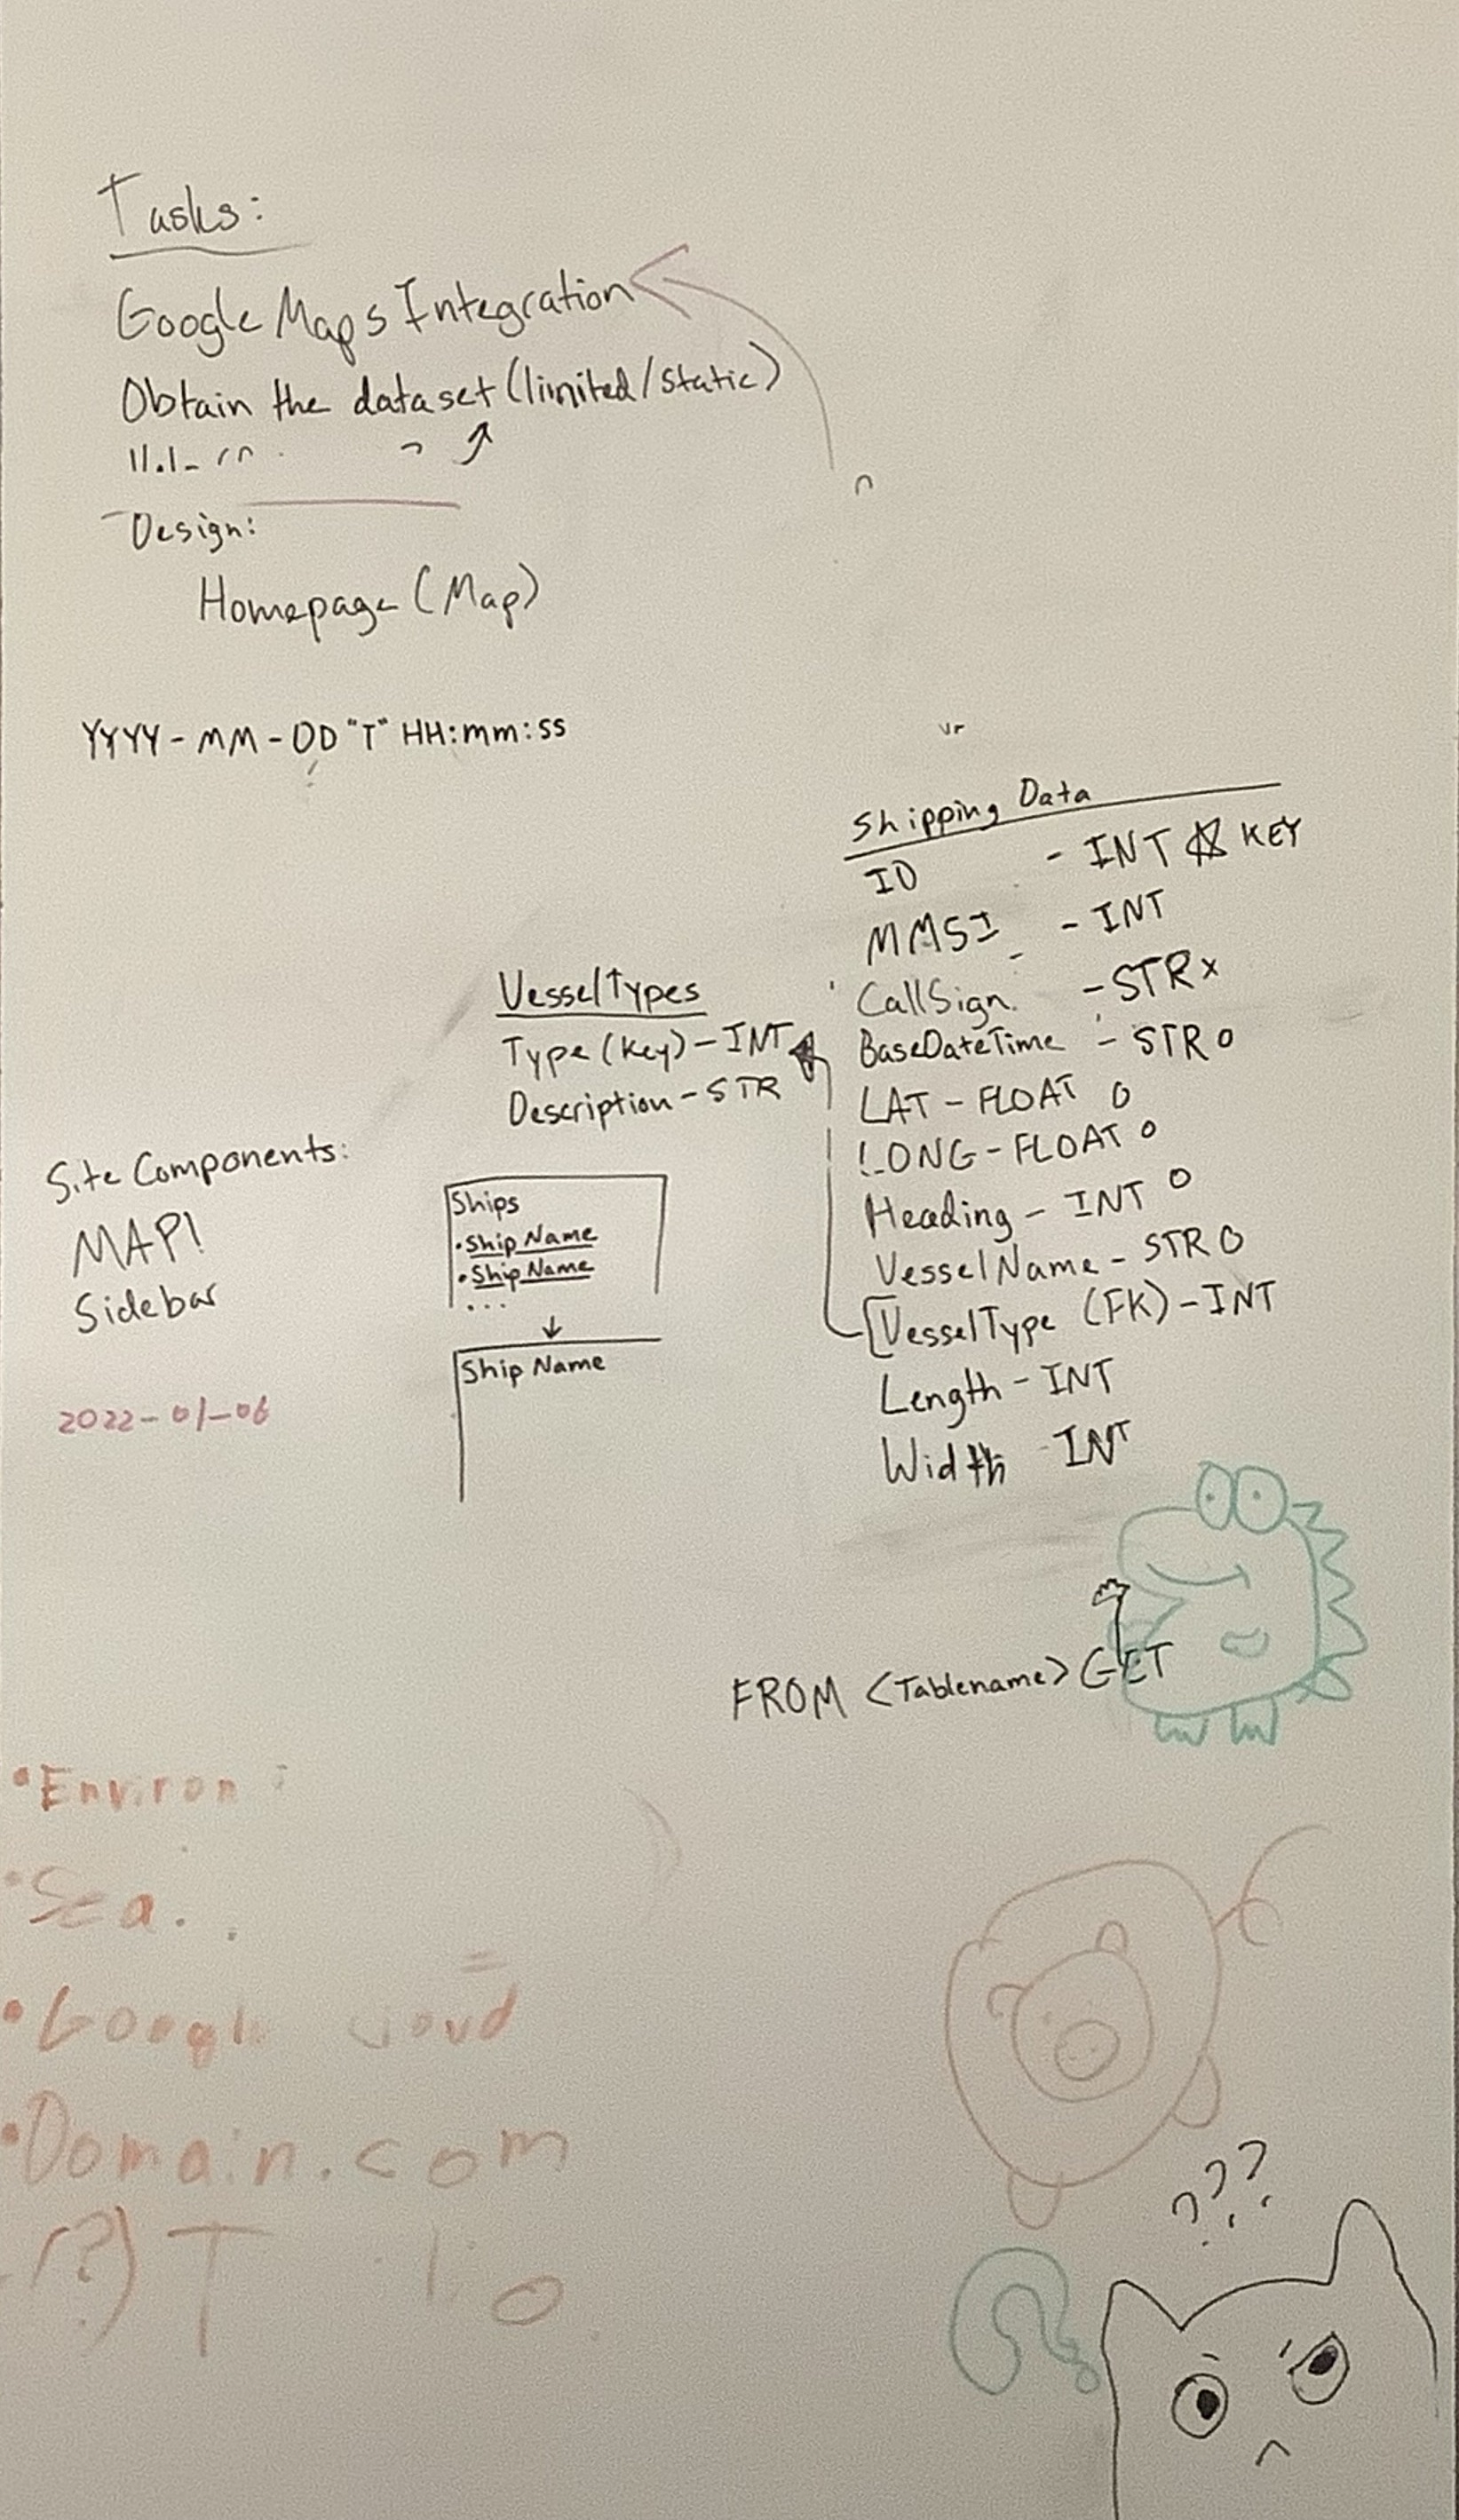 Tasks:
Google Maps Integration
Obtain the dataset (limited/static)
Design:
Homepage (Map)
YYYY-MM-DD "T" HH:mm:ss
Shipping Data
ID - INT ☆ KEY
MMSI - INT
CallSign - STR x
BaseDateTime - STR o
LAT - FLOAT o
LONG - FLOAT o
Heading - INT o
VesselName - STR o
VesselType (FK) - INT
Length - INT
Width INT
VesselTypes
Type (Key) - INT
Description - STR
Site Components:
MAP!
Sidebar
2022-01-06
Ships
• Ship Name
• Ship Name
...
Ship Name
FROM <Tablename> GET
• Environ
• Google Cloud
• Domain.com
(?)
???